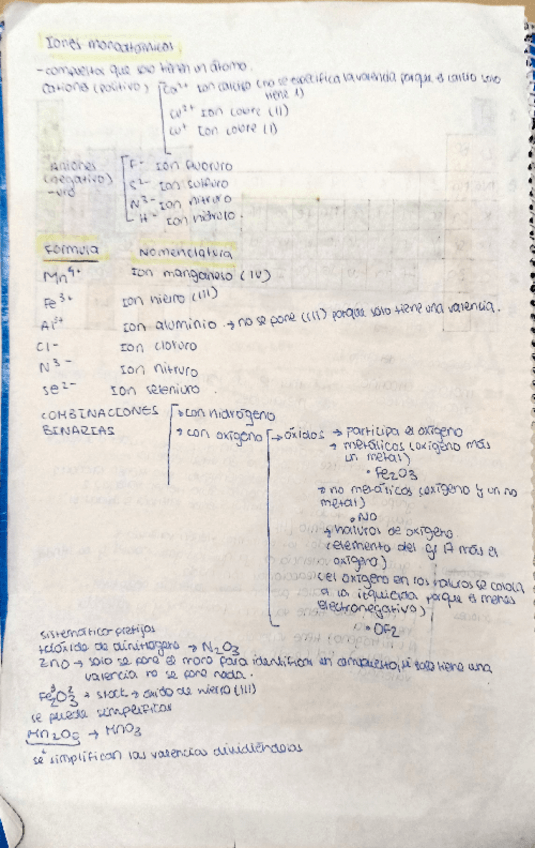 Iones monoatómicos.
- compuestos que solo tienen un átomo.
Cationes (positivo) Ca²⁺ Ion calcio (no se especifica la valencia porque el calcio solo
tiene 1)
Cu²⁺ Ion cobre (II)
Cu⁺ Ion cobre (I)
Aniones
(negativo)
-uro
F⁻ Ion fluoruro
S²⁻ Ion sulfuro
N³⁻ Ion nitruro
H⁻ Ion hidruro.
Fórmula Nomenclatura
Mn⁴⁺ Ion manganeso (IV)
Fe³⁺ Ion hierro (III)
Al³⁺ Ion aluminio → no se pone (III) porque solo tiene una valencia.
Cl⁻ Ion cloruro
N³⁻ Ion nitruro
Se²⁻ Ion seleniuro.
COMBINACIONES
BINARIAS
→ con hidrógeno
→ con oxígeno → óxidos → participa el oxígeno
→ metálicos (oxígeno más
un metal)
• Fe₂O₃
→ no metálicos (oxígeno y un no
metal)
• NO
→ haluros de oxígeno
(elemento del gr 17 más el
oxígeno)
(el oxígeno en los haluros se coloca
a la izquierda porque es menos
electronegativo)
• OF2
sistemática: prefijos
trióxido de dinitrógeno → N₂O₃
ZnO → solo se pone el mono para identificar un compuesto, si solo tiene una
valencia no se pone nada.
Fe₂O₃ → stock → óxido de hierro (III)
se puede simplificar
Mn₂O₆ → MnO₃
se simplifican las valencias dividiéndolas